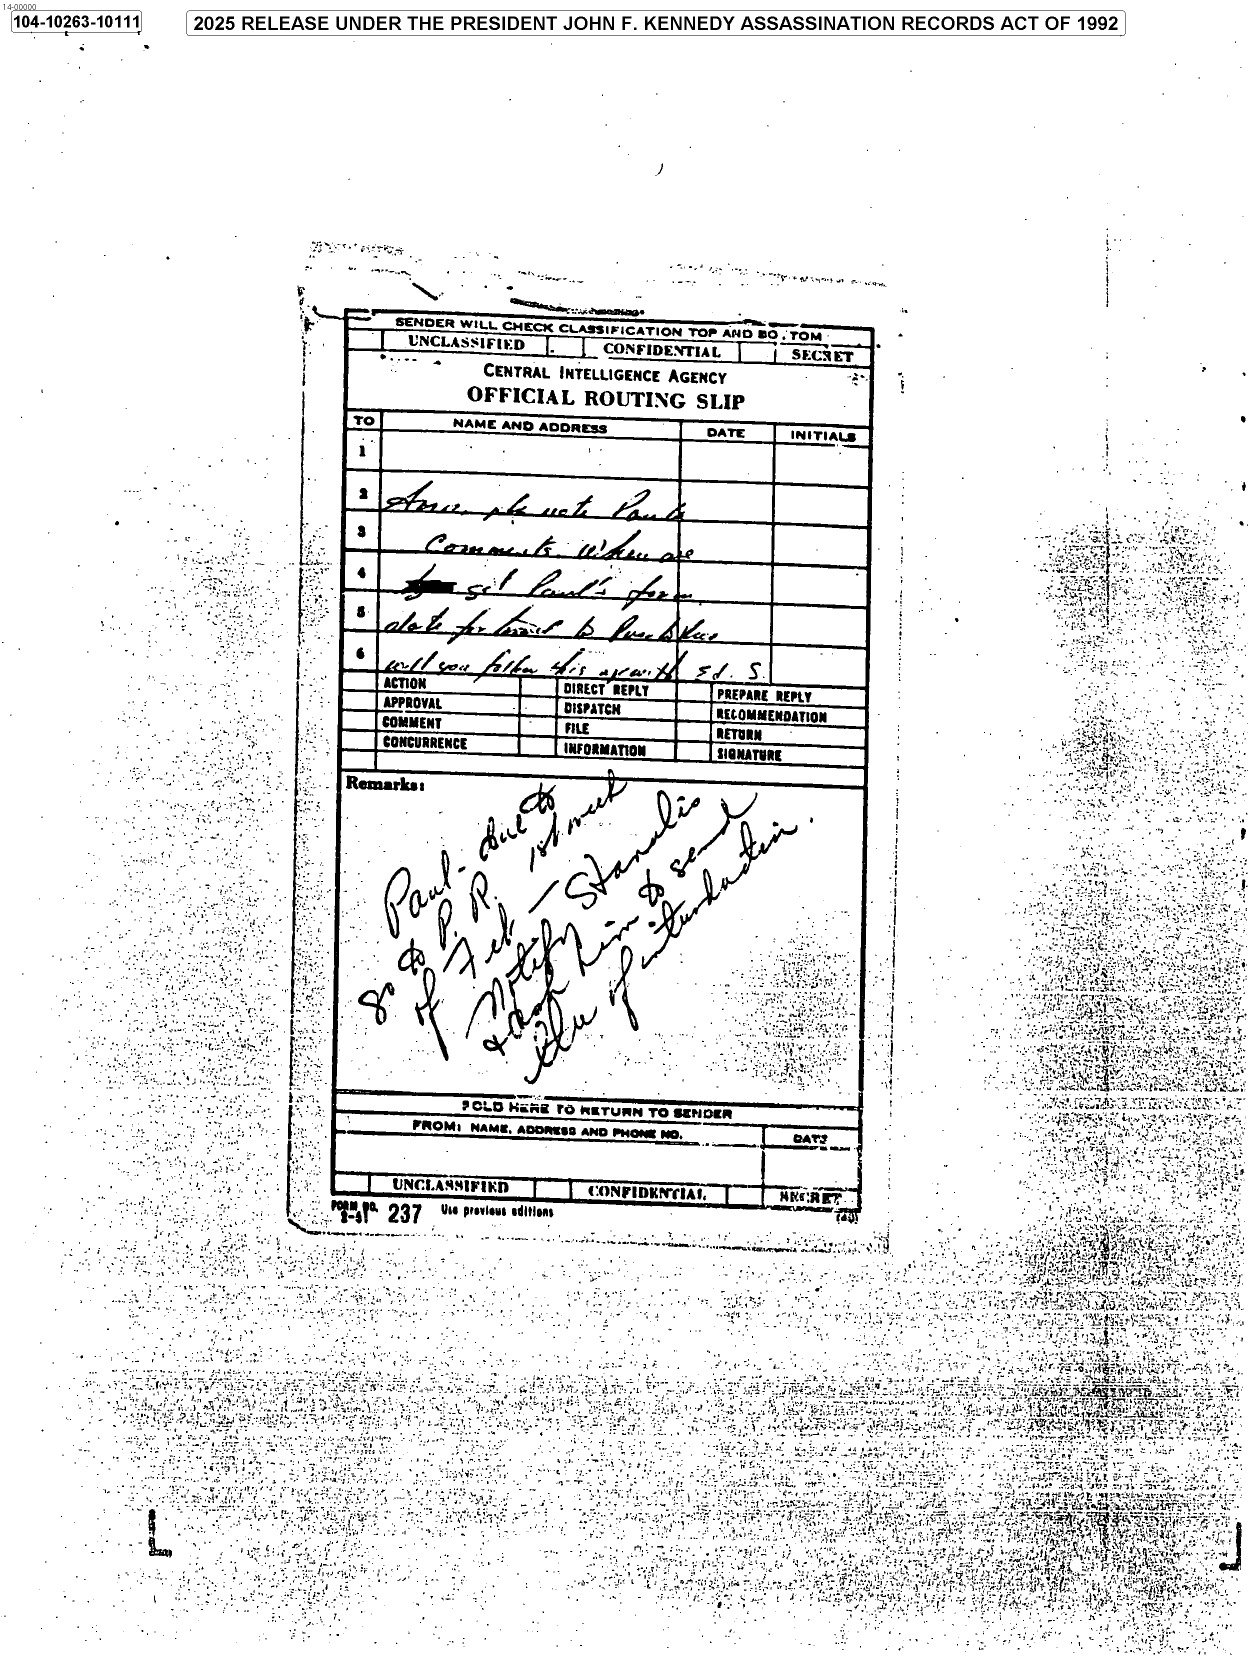 14-00000
104-10263-10111
2025 RELEASE UNDER THE PRESIDENT JOHN F. KENNEDY ASSASSINATION RECORDS ACT OF 1992
SENDER WILL CHECK CLASSIFICATION TOP AND BOTTOM
UNCLASSIFIED CONFIDENTIAL SECRET
CENTRAL INTELLIGENCE AGENCY
OFFICIAL ROUTING SLIP
TO NAME AND ADDRESS DATE INITIALS
1
2 note
3 Comments. When are
4 get Paul's
5 date for travel to
6 will you follow this up with Ed. S.
ACTION DIRECT REPLY PREPARE REPLY
APPROVAL DISPATCH RECOMMENDATION
COMMENT FILE RETURN
CONCURRENCE INFORMATION SIGNATURE
Remarks:
Paul - due to
go to P.R. 1st week
of Feb -
Notify Stanulis
& ask him to send
of introduction.
FOLD HERE TO RETURN TO SENDER
FROM: NAME, ADDRESS AND PHONE NO. DATE
UNCLASSIFIED CONFIDENTIAL SECRET
FORM NO. 237 Use previous editions (40)
2-61